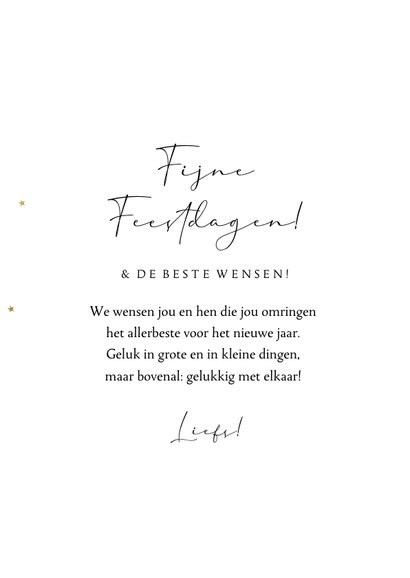 Fijne
Feestdagen!
& DE BESTE WENSEN!
We wensen jou en hen die jou omringen
het allerbeste voor het nieuwe jaar.
Geluk in grote en in kleine dingen,
maar bovenal: gelukkig met elkaar!
Liefs!